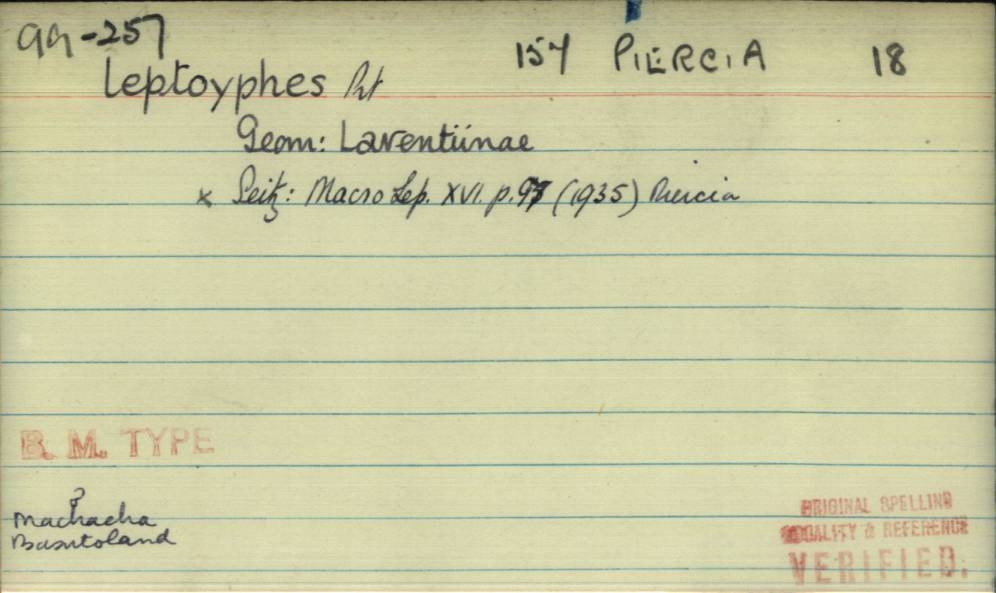 99-257
157 PIERCIA 18
Leptoyphes Prt
Geom: Larentiinae
x Seitz: Macro Lep. XVI. p.97 (1935) Piercia
B. M. TYPE
Machacha
Basutoland
ORIGINAL SPELLING
LOCALITY & REFERENCE
VERIFIED.